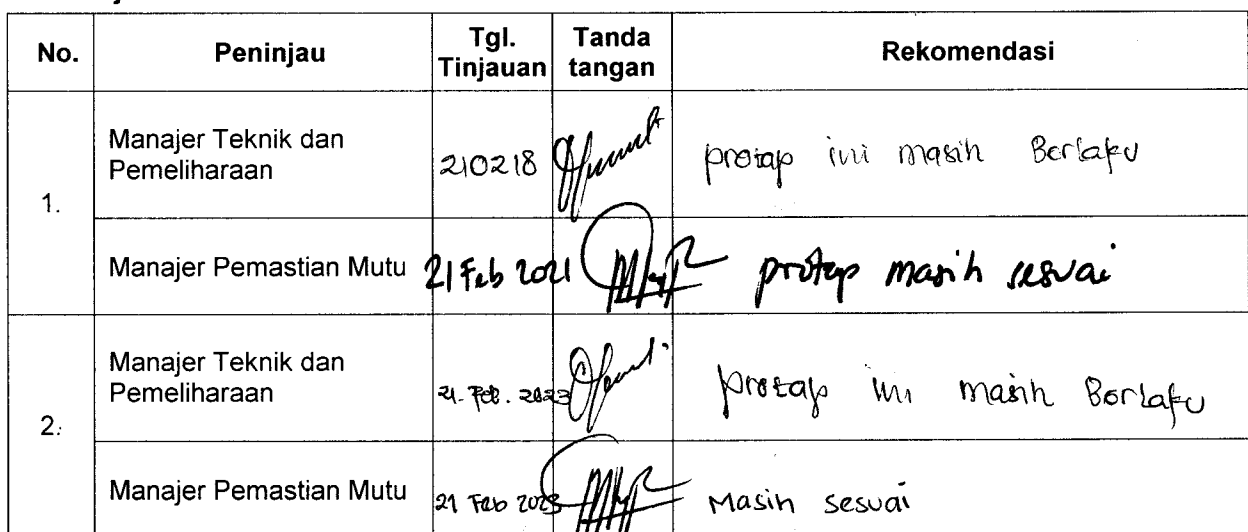 No. Peninjau Tgl. Tinjauan Tanda tangan Rekomendasi
1.
Manajer Teknik dan Pemeliharaan 210218 protap ini masih Berlaku
Manajer Pemastian Mutu 21 Feb 2021 protap masih sesuai
2.
Manajer Teknik dan Pemeliharaan 21. Feb. 2023 protap ini masih Berlaku
Manajer Pemastian Mutu 21 Feb 2023 Masih sesuai